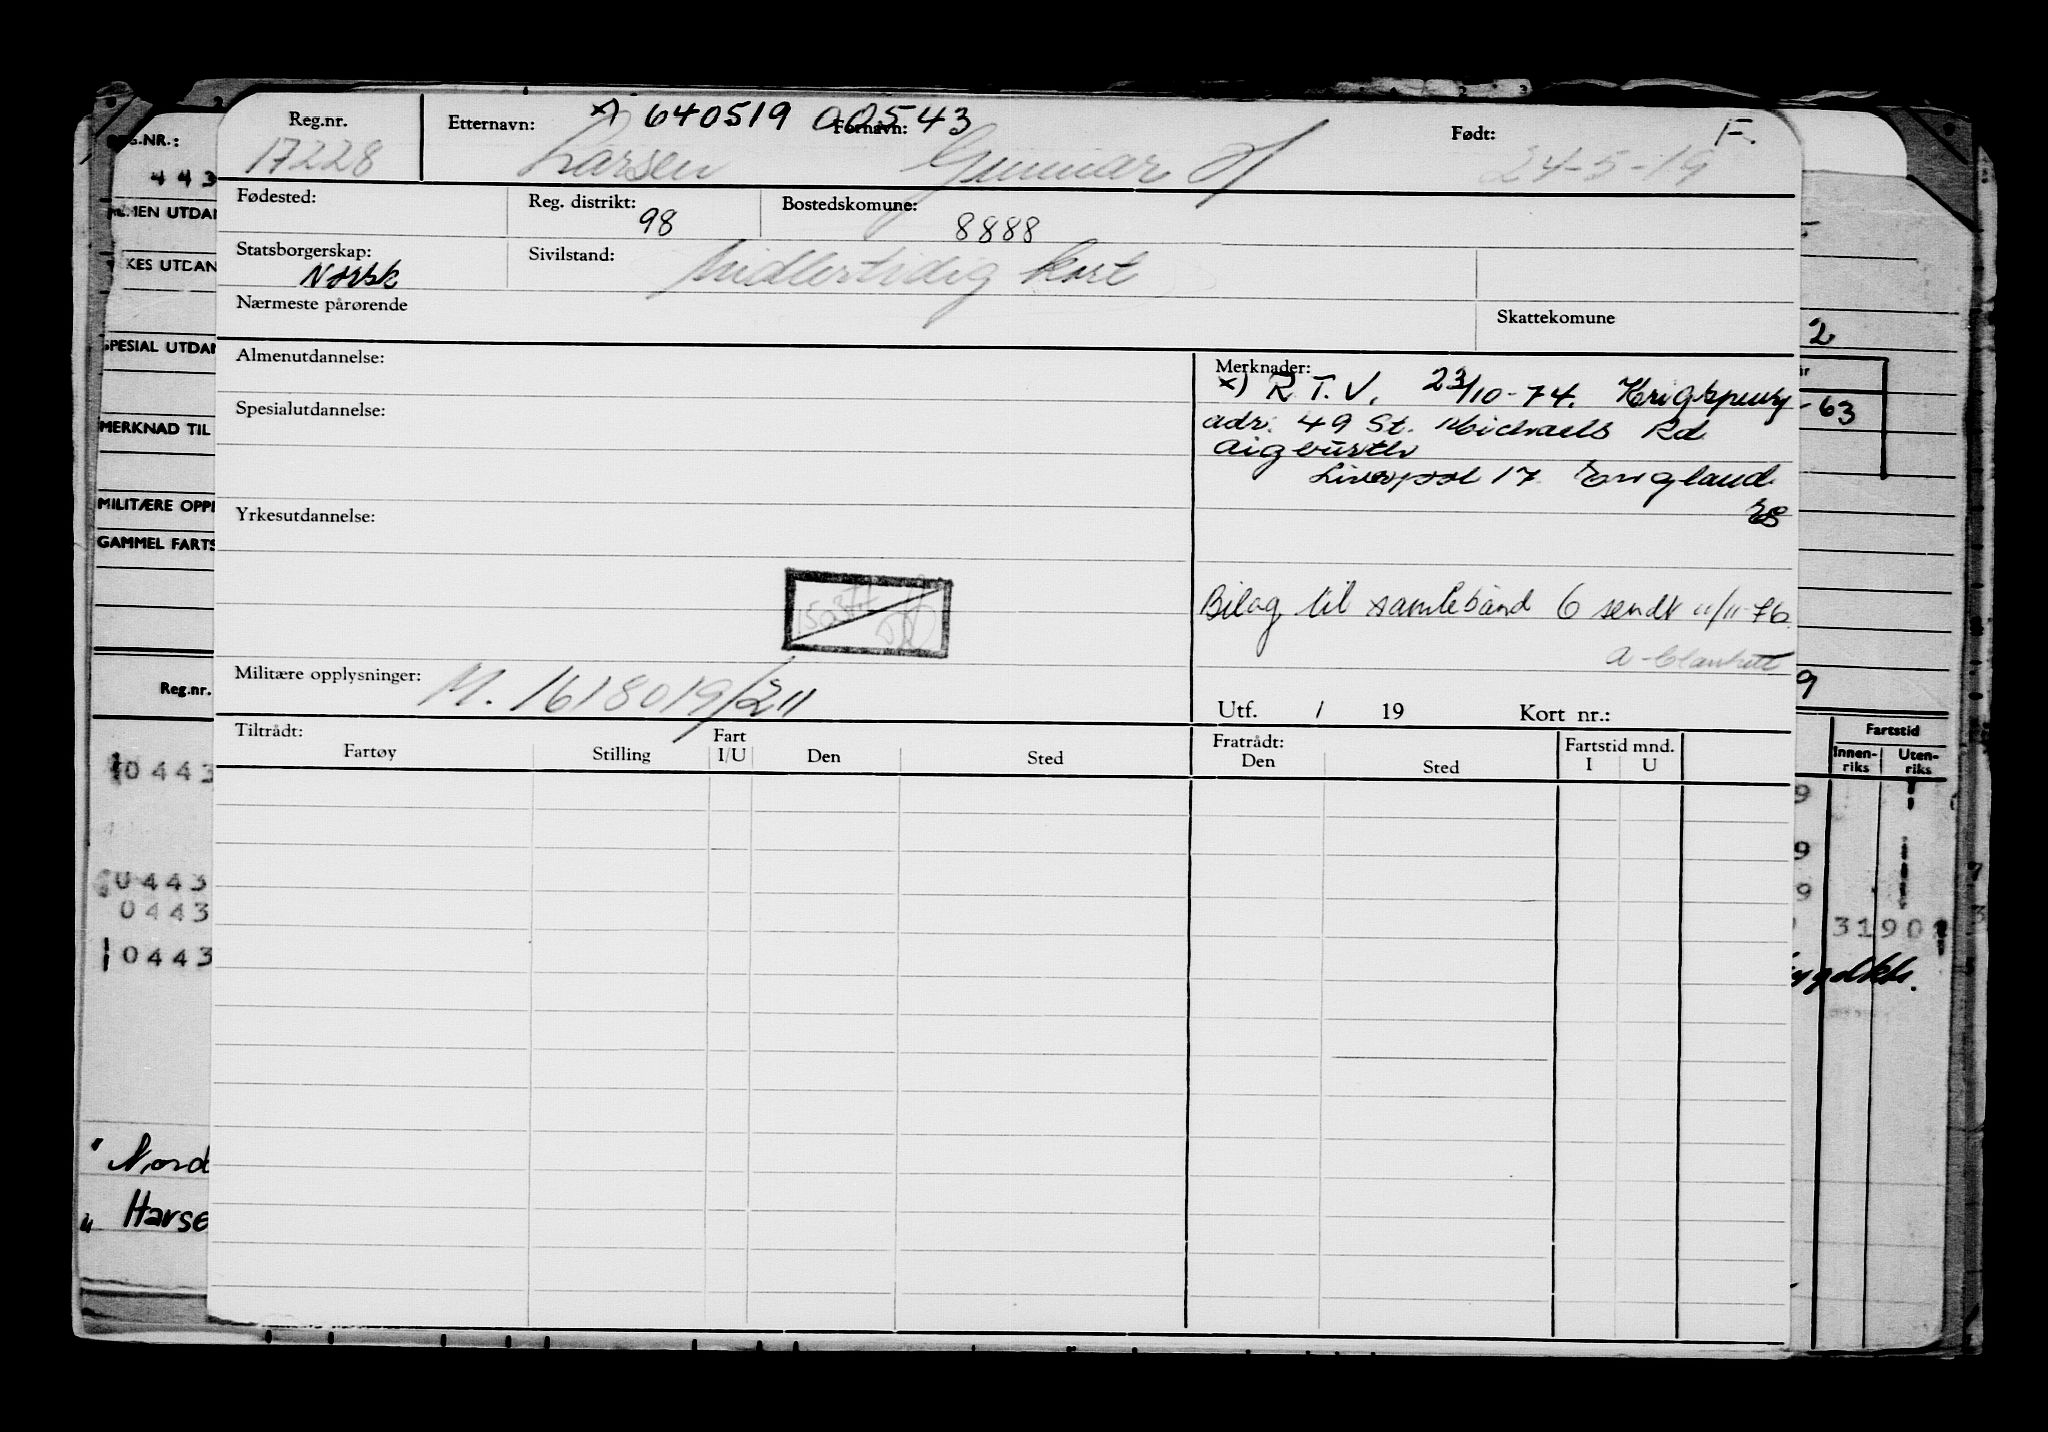 Reg.nr. Etternavn: x) 640519 00543 Fornavn: Født: F.
17228 Larsen Gunnar H 24-5-19
Fødested: Reg. distrikt: 98 Bostedskomune: 8888
Statsborgerskap: Norsk Sivilstand: Midlertidig kort
Nærmeste pårørende Skattekomune
Almenutdannelse: Merknader:
x) R.T.V. 23/10-74. Krigspensj
Spesialutdannelse: adr: 49 St. Michaels Rd
Aigburth
Liverpool 17 England
ES
Yrkesutdannelse:
Bilag til samlebånd 6 sendt 11/11-76
Militære opplysninger: M. 1618019/211
Utf. / 19 Kort nr.:
Tiltrådt: Fratrådt: Fartstid mnd.
Fartøy Stilling Fart I/U Den Sted Den Sted I U
G.NR.:
443
MEN UTDAN
KES UTDAN
SPESIAL UTDAN
MERKNAD TIL
MILITÆRE OPPL
GAMMEL FARTS
Reg.nr.
0443
0443
0443
0443
" Nord
" Harse
2
-63
9
Fartstid
Innen-riks Uten-riks
9
9
9
31902